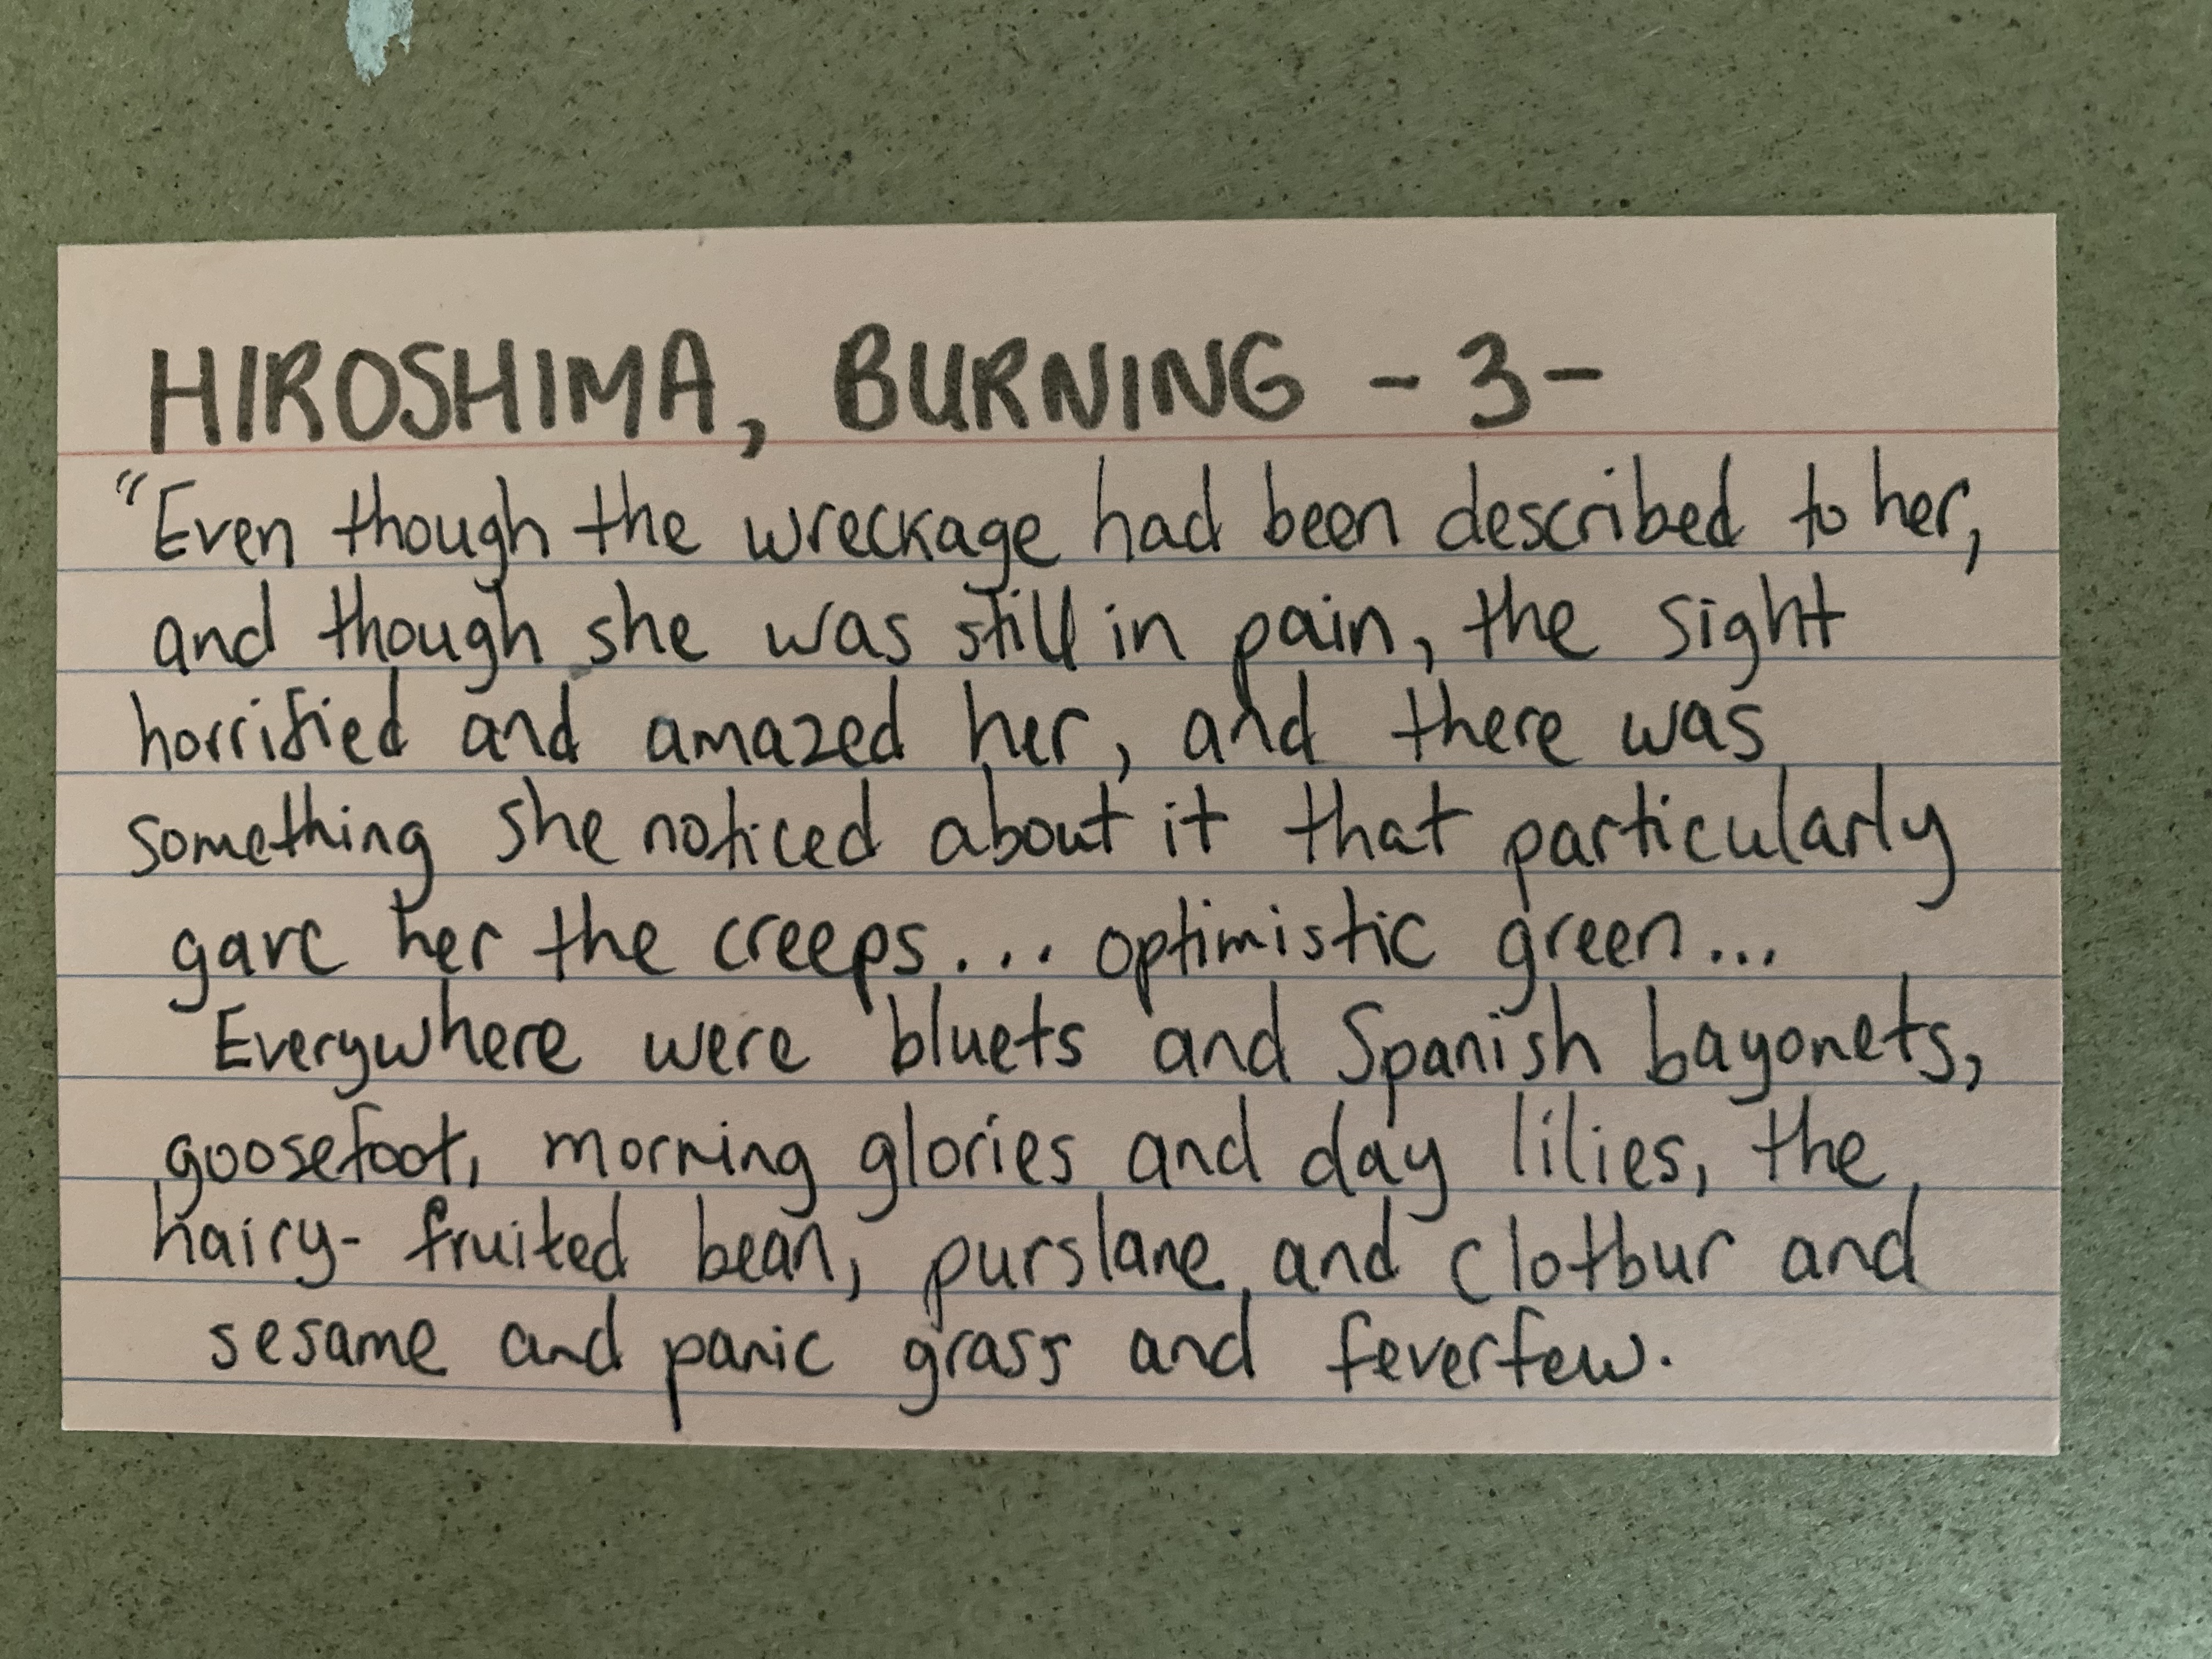 HIROSHIMA, BURNING - 3 -
"Even though the wreckage had been described to her,
and though she was still in pain, the sight
horrified and amazed her, and there was
something she noticed about it that particularly
gave her the creeps... optimistic green...
Everywhere were bluets and Spanish bayonets,
goosefoot, morning glories and day lilies, the
hairy-fruited bean, purslane and clotbur and
sesame and panic grass and feverfew.